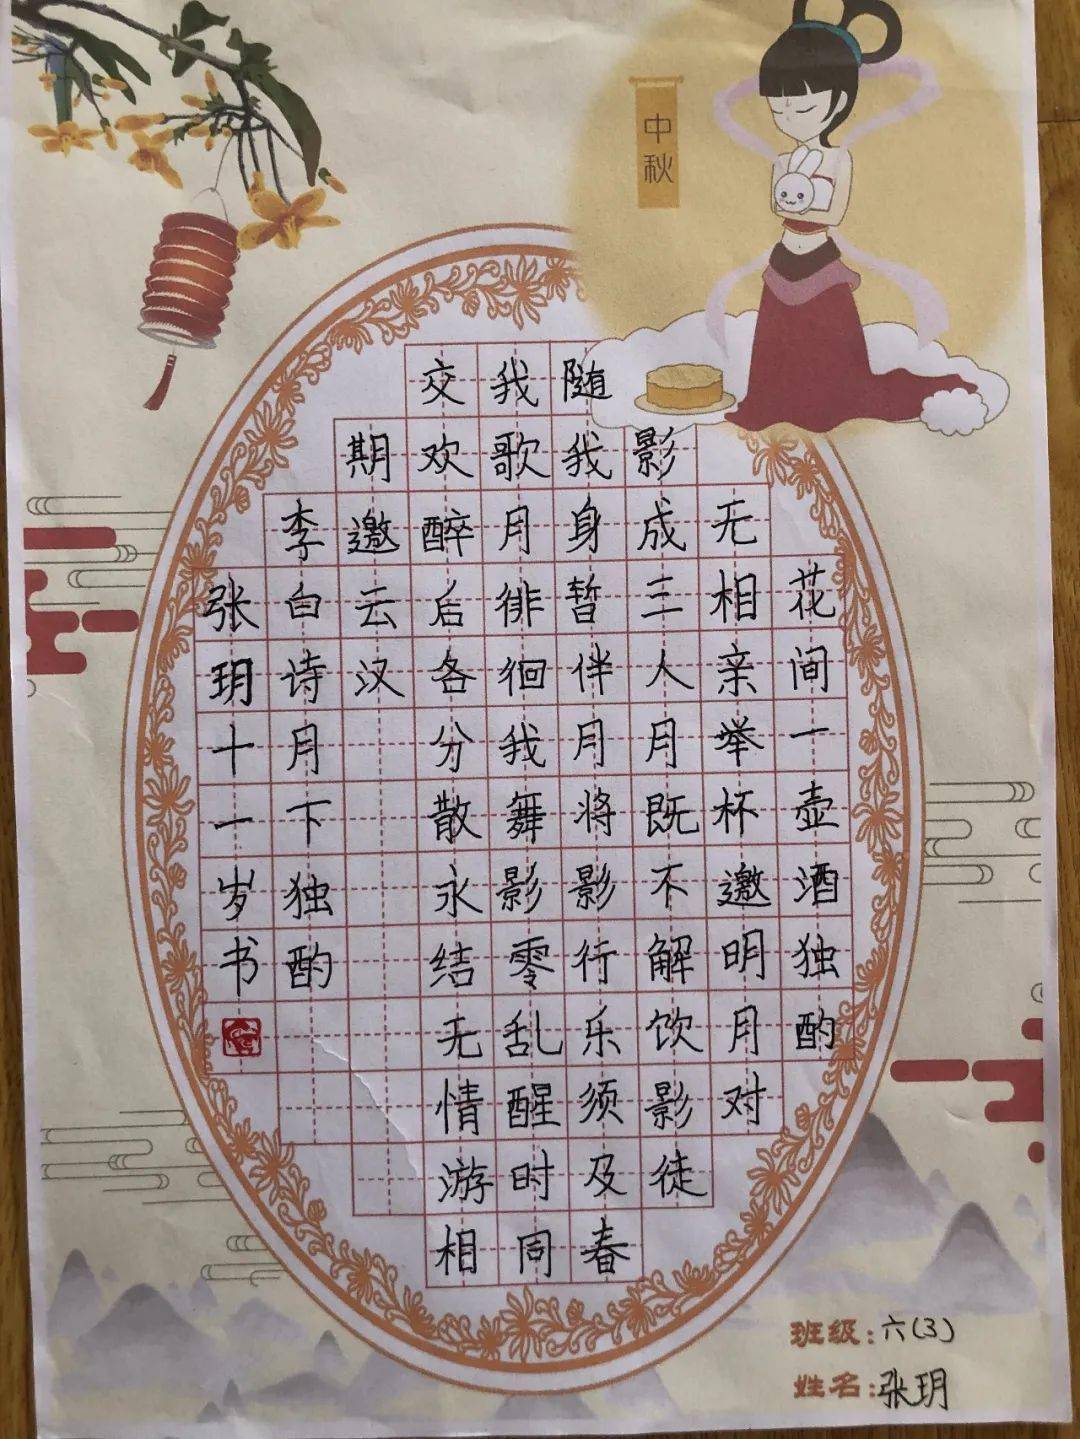 中秋
花间一壶酒独酌
无相亲举杯邀明月对
影成三人月既不解饮影徒
随我身暂伴月将影行乐须及春
我歌月徘徊我舞影零乱醒时同
交欢醉后各分散永结无情游相
期邀云汉
李白诗月下独酌
张玥十一岁书
班级:六(3)
姓名:张玥